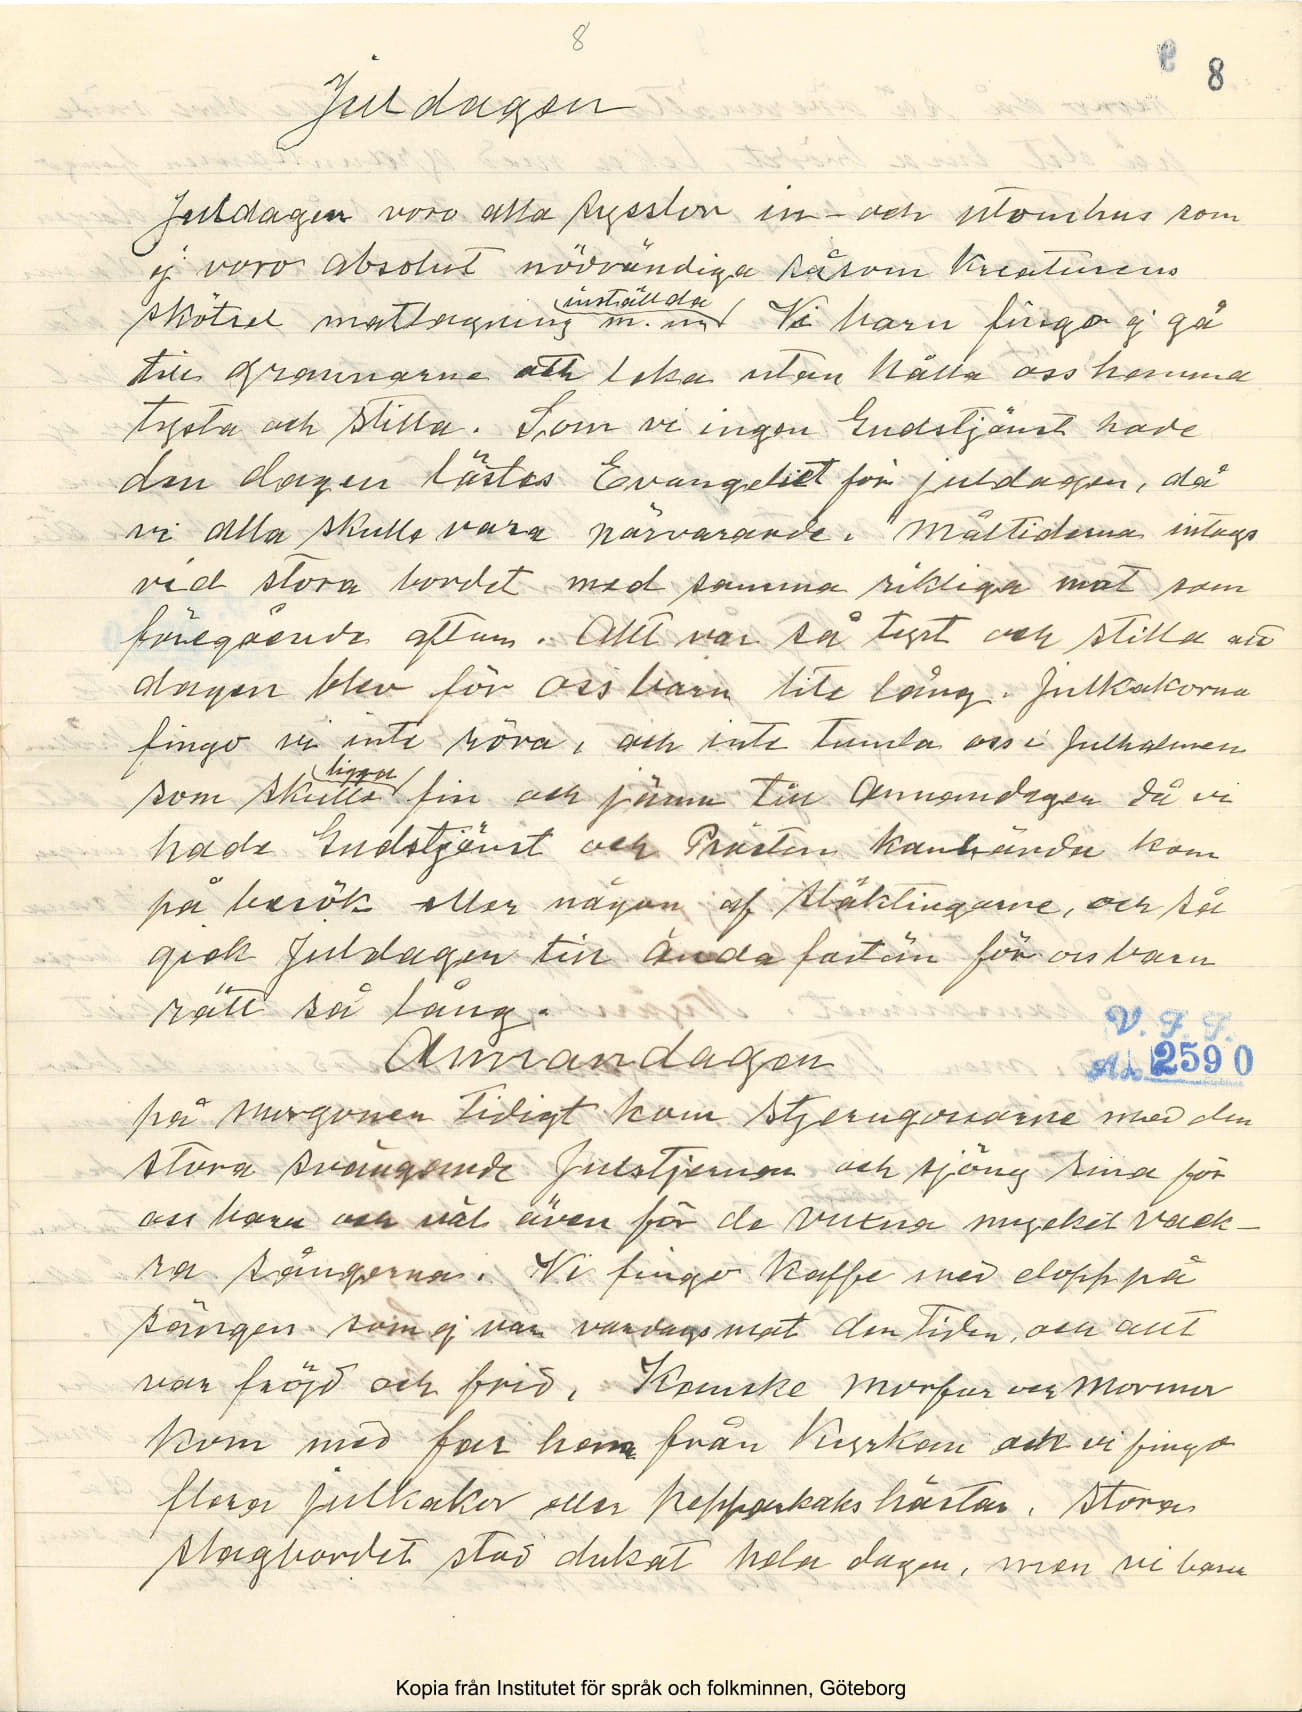 8
8
Juldagen
Juldagen voro alla sysslor in- och utomhus som
ej voro absolut nödvändiga såsom Kreaturens
skötsel matlagning m.m inställda Vi barn fingo ej gå
till grannarne och leka utan hålla oss hemma
tysta och stilla. Som vi ingen Gudstjänst hade
den dagen lästes Evangeliet för juldagen, då
vi alla skulle vara närvarande. Måltiderna intogs
vid stora bordet med samma rikliga mat som
föregående afton. Allt var så tyst och stilla att
dagen blev för oss barn lite lång. Julkakorna
fingo vi inte röra, och inte tumla oss i Julhalmen
som skulle ligga fin och jämn till Annandagen då vi
hade Gudstjänst och Prästen kanhända kom
på besök eller någon af släktingarne, och så
gick Juldagen till ända fastän för oss barn
rätt så lång.
V. F. F.
Annandagen
Ad. 2590
på morgonen tidigt kom stjerngossarne med den
stora svängande Julstjernan och sjöng sina för
oss barn och väl även för de vuxna mycket vack-
ra sångerna. Vi fingo Kaffe med dopp på
sängen som ej var vardagsmat den tiden, och allt
var fröjd och frid. Kanske Morfar och Mormor
kom med far hem från Kyrkan och vi fingo
flera julkakor eller pepparkakshästar. Stora
slagbordet stod dukat hela dagen, men vi barn
Kopia från Institutet för språk och folkminnen, Göteborg